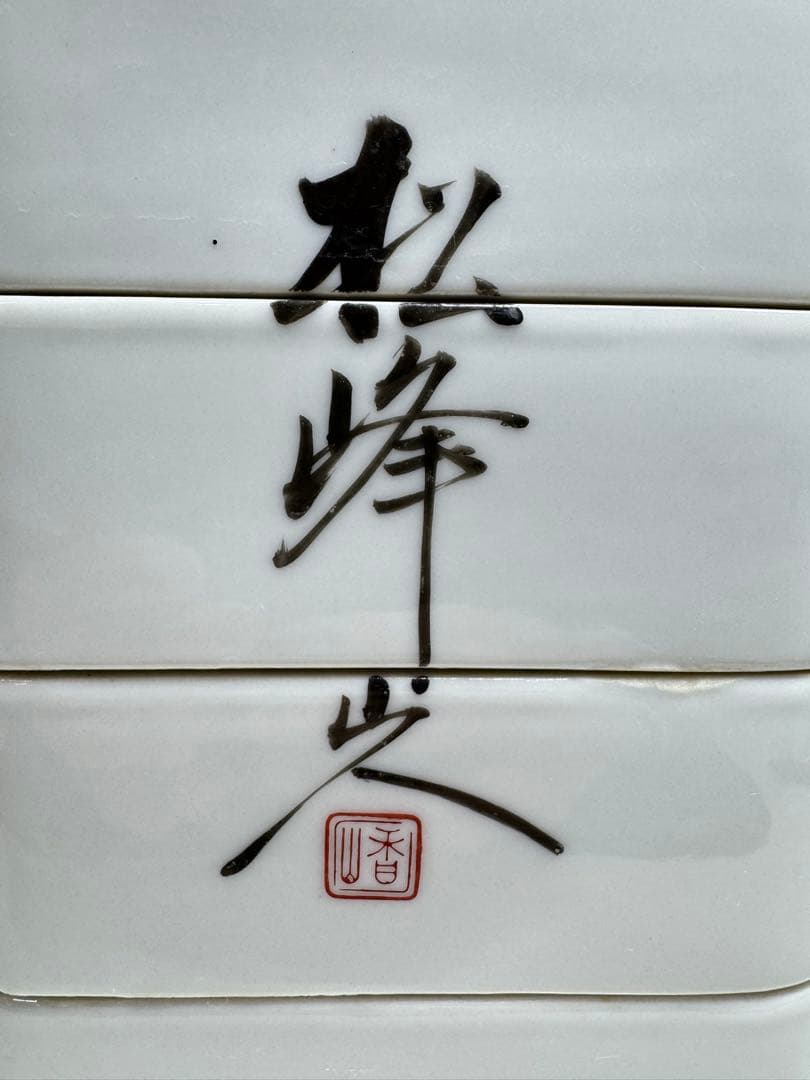 松峰山人
香山